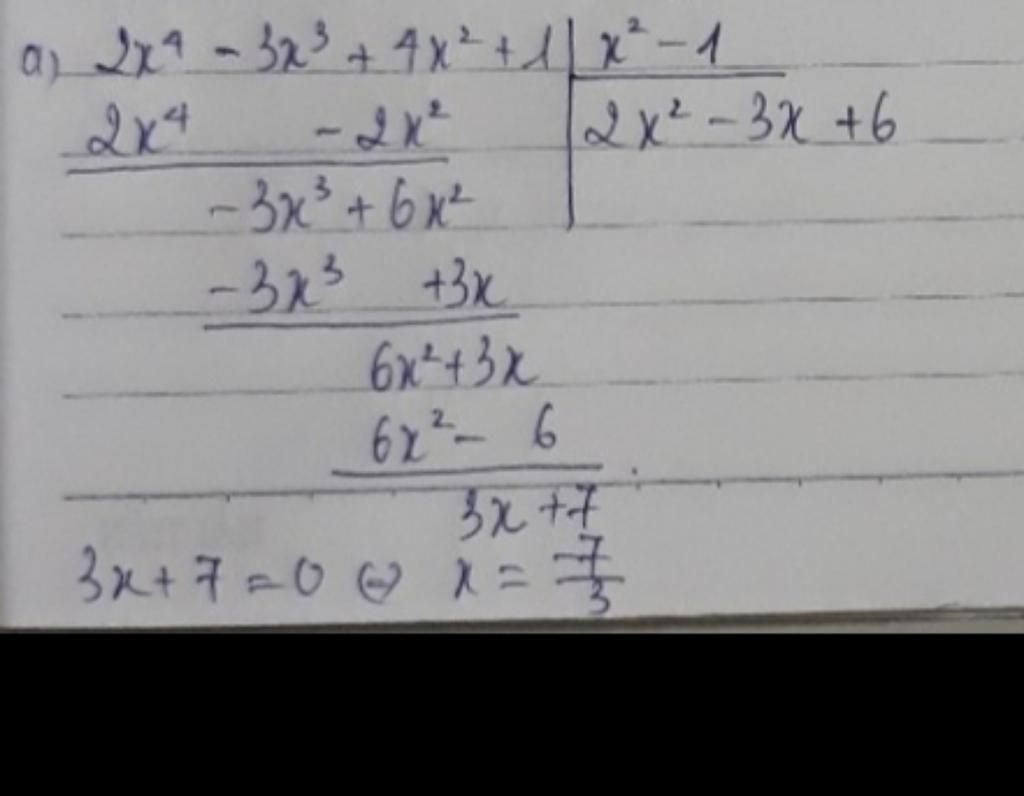 a) 2x⁴ - 3x³ + 4x² + 1 | x² - 1
2x⁴ - 2x² | 2x² - 3x + 6
- 3x³ + 6x²
- 3x³ + 3x
6x² + 3x
6x² - 6
3x + 7
3x + 7 = 0 ⇔ x = -7/3